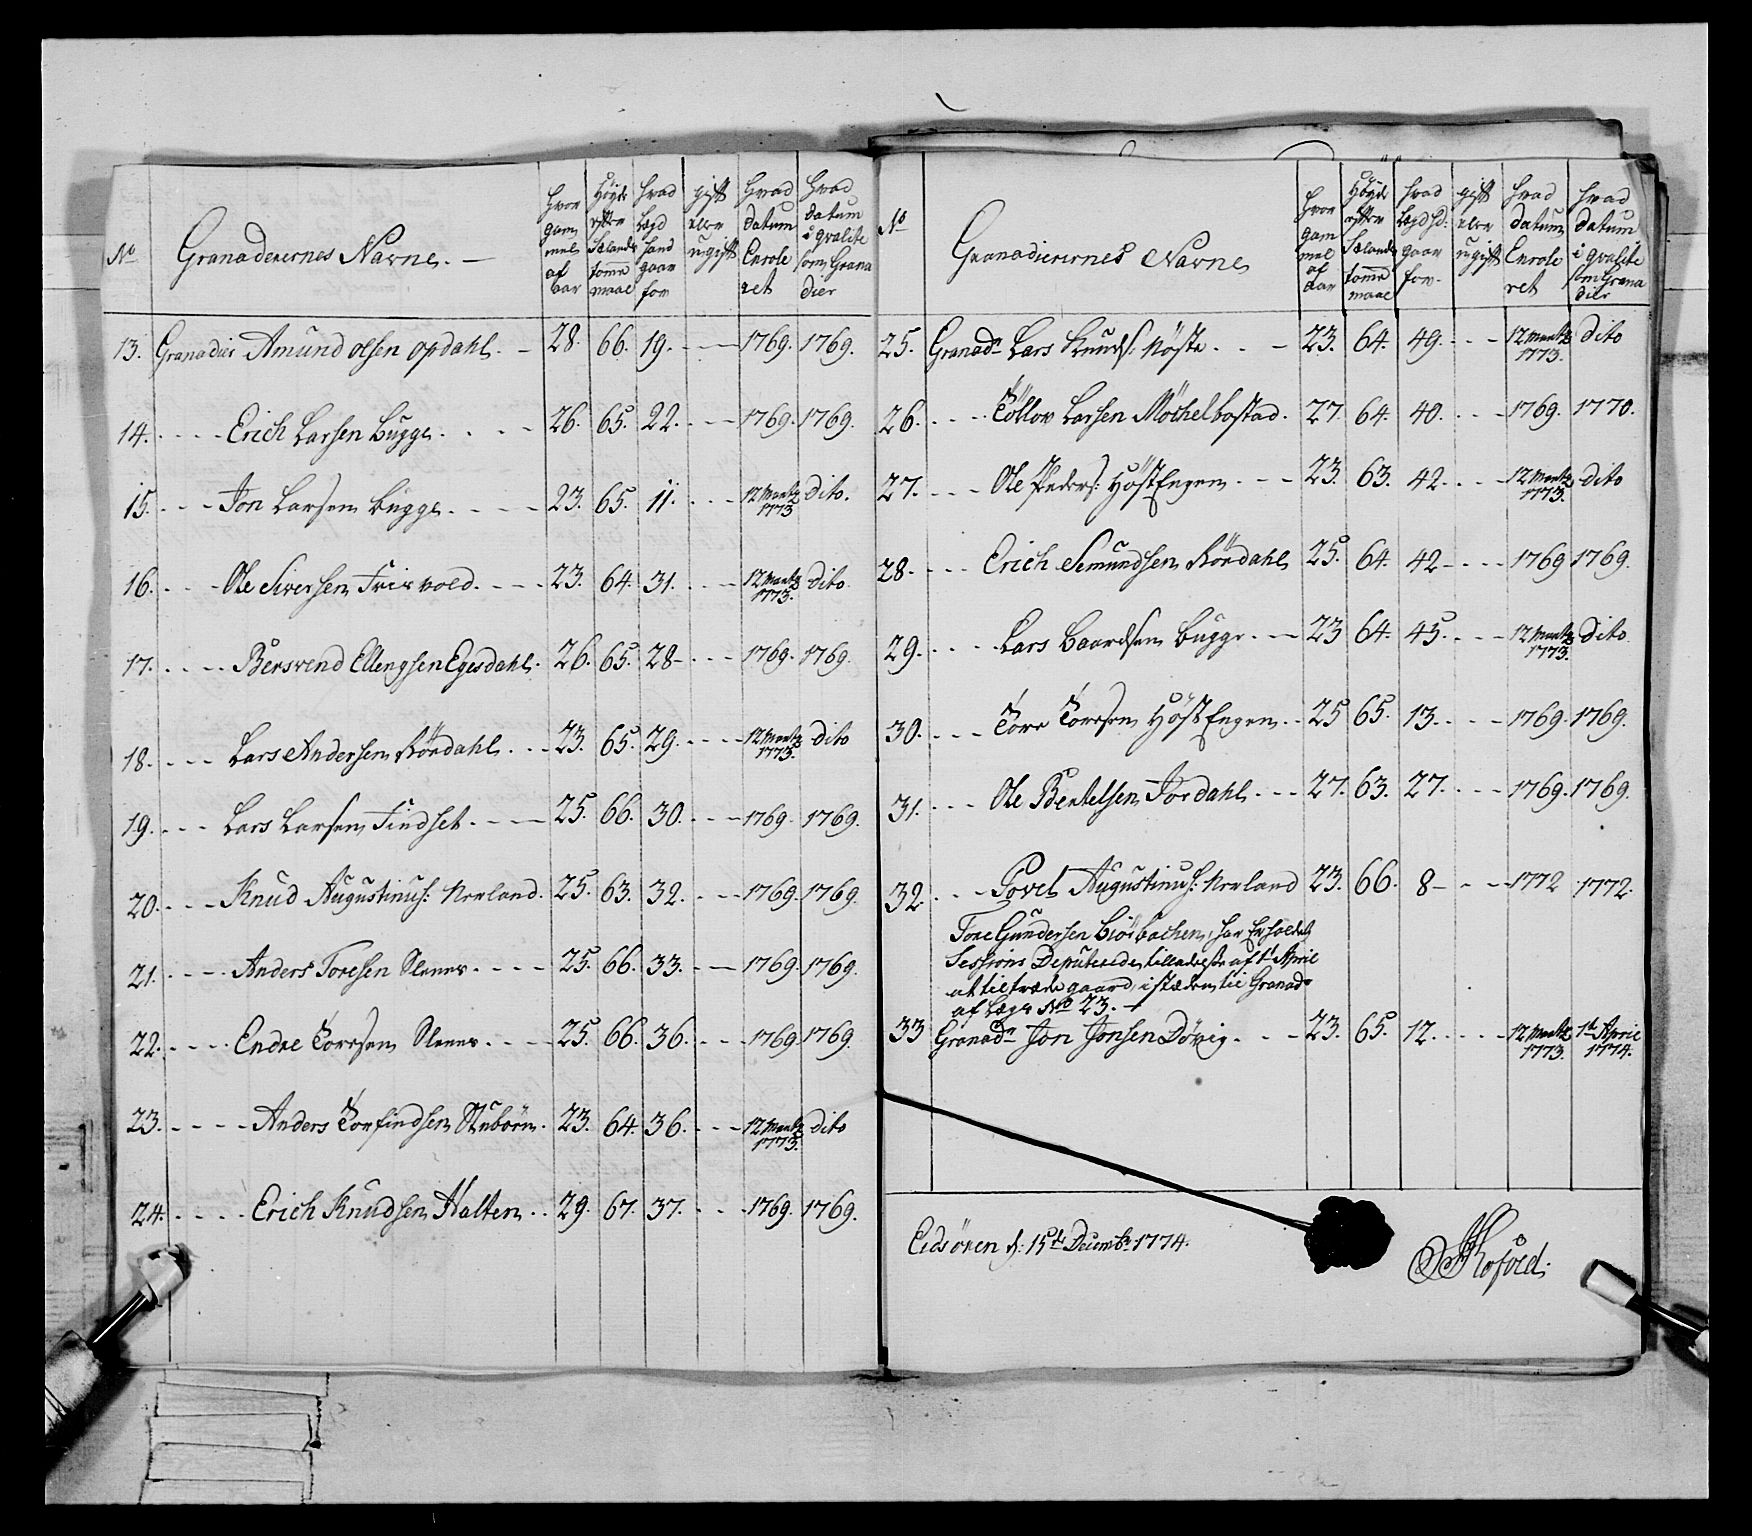 No
Granadeerernes Navne. —
Hvor gam mel af aar
Høyde efter Sælands tomme maal
hvad Lægd hand gaar for
gift eller ugift
hvad datum Enrole ret
hvad datum i qvalite som Grana dier
13. Granadier Amund Olsen Opdahl. – 28. 66. 19. – – – 1769. 1769.
14. - - - - Erich Larsen Bugge. - - - 26. 65. 22. - - - 1769. 1769.
15. - - - Jon Larsen Bugge. - - - - 23. 65. 11. - - - 12 Martz 1773 dito.
16. - - - Ole Siversen Friisvold. - - - 23. 64. 31. - - - 12 Martz 1773. dito.
17. - - - - Bersvend Ellengsen Egisdahl. 26. 65. 28 - - - - 1769. 1769.
18. - - - Lars Andersen Rördahl. - - - 23. 65. 29. - - - - 12 Martz 1773. dito
19. - - - Lars Larsen Findset. - - - 25. 66. 30. - - - 1769. 1769.
20. - - - Knud Augustinus: Norland. 25. 63. 32. - - - 1769. 1769.
21. - - - - Anders Toresen Slenes. - - - - 25. 66. 33. - - - 1769. 1769.
22. - - - - Endre Toresen Slenes. - - - - 25. 66. 36. - - - 1769. 1769.
23. - - - - Anders Torfindsen Stubörn. 23. 64. 36. - - - 12 Martz 1773. dito
24. - - - - Erich Knudsen Halten. . . 29. 67. 37. - - - 1769. 1769.
No
Granadierernes Navne
Hvor gam mel af Aar
Høyde efter Sælands tomme maal
hvad Lægd hd: gaar for
gift eller ugift
hvad datum Enrole ret
hvad datum i qvalite som Grana dier
25. Granadr Lars Knuds: Röste. - - - 23. 64. 49. - - - 12 Martz 1773. dito
26. - - - - Töllov Larsen Möchelbostad. 27. 64. 40. - - - 1769. 1770.
27. - - - Ole Peders: HöstEngen. - - - 23. 63. 42. - - - 12 Martz 1773. dito
28. - - - - Erich Semundsen Rördahl 25. 64. 42 - - - - 1769 1769.
29. - - - - Lars Baardsen Bugge. - - 23 64. 45. - - - 12 Martz 1773. dito
30. - - - Tore Toresen HöstEngen. . 25 65. 13. - - - - 1769. 1769.
31. - - - Ole Bentelsen Jordahl. - - - 27. 63. 27. - - - - 1769. 1769.
32. - - - Povel Augustinus: Norland 23. 66. 8 - - - - 1772 1772.
Tore Gundersen Biörbachen, har Erholdet
Sessions Deputerede, tilladelse af 1te April
at tiltræde gaard, i stæden til Granadr
af Læge No 23. –
33 Granadr Jon Jonsen Döving. - - - 23. 65. 12. - - - - 12 Martz 1773. 1te April 1774.
Eidsören d: 15de Decembr 1774.
Kofoed.